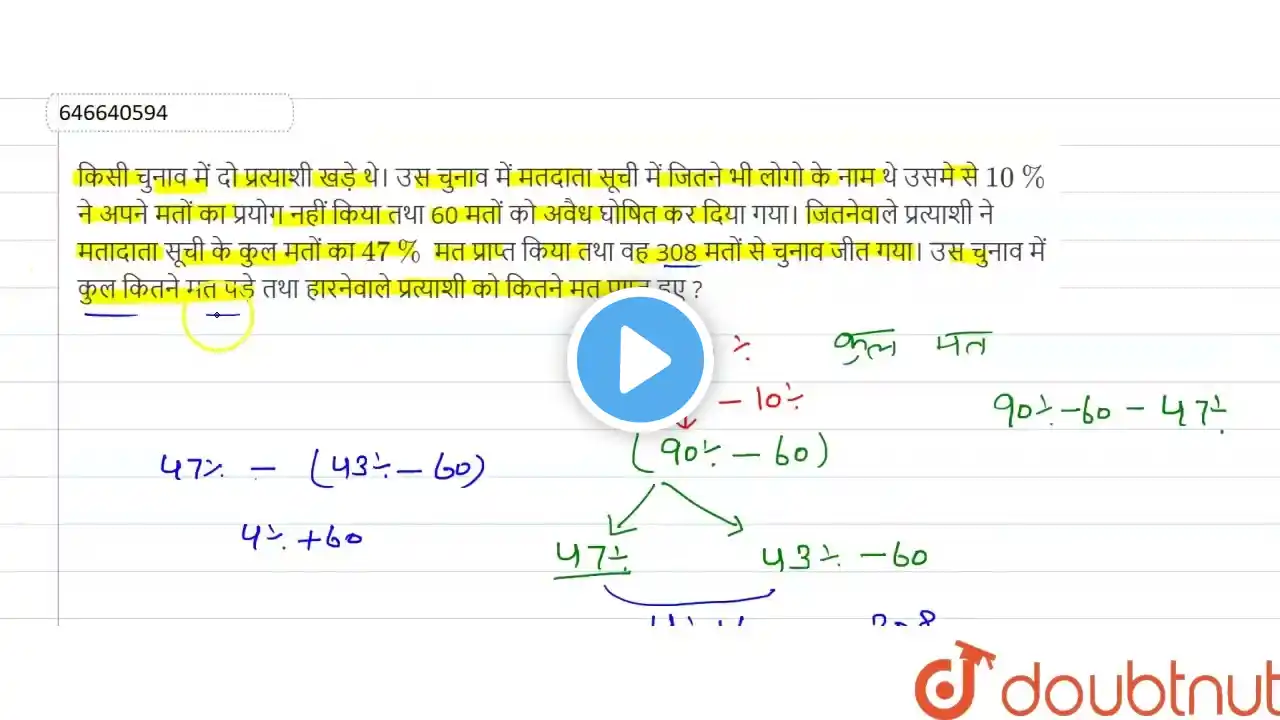 646640594
किसी चुनाव में दो प्रत्याशी खड़े थे। उस चुनाव में मतदाता सूची में जितने भी लोगो के नाम थे उसमे से 10 %
ने अपने मतों का प्रयोग नहीं किया तथा 60 मतों को अवैध घोषित कर दिया गया। जितनेवाले प्रत्याशी ने
मतादाता सूची के कुल मतों का 47 % मत प्राप्त किया तथा वह 308 मतों से चुनाव जीत गया। उस चुनाव में
कुल कितने मत पड़े तथा हारनेवाले प्रत्याशी को कितने मत हुए ?
% कुल मत
- 10%
90% - 60 - 47%
(90% - 60)
47% - (43% - 60)
4% + 60
47% 43% - 60
308
doubtnut